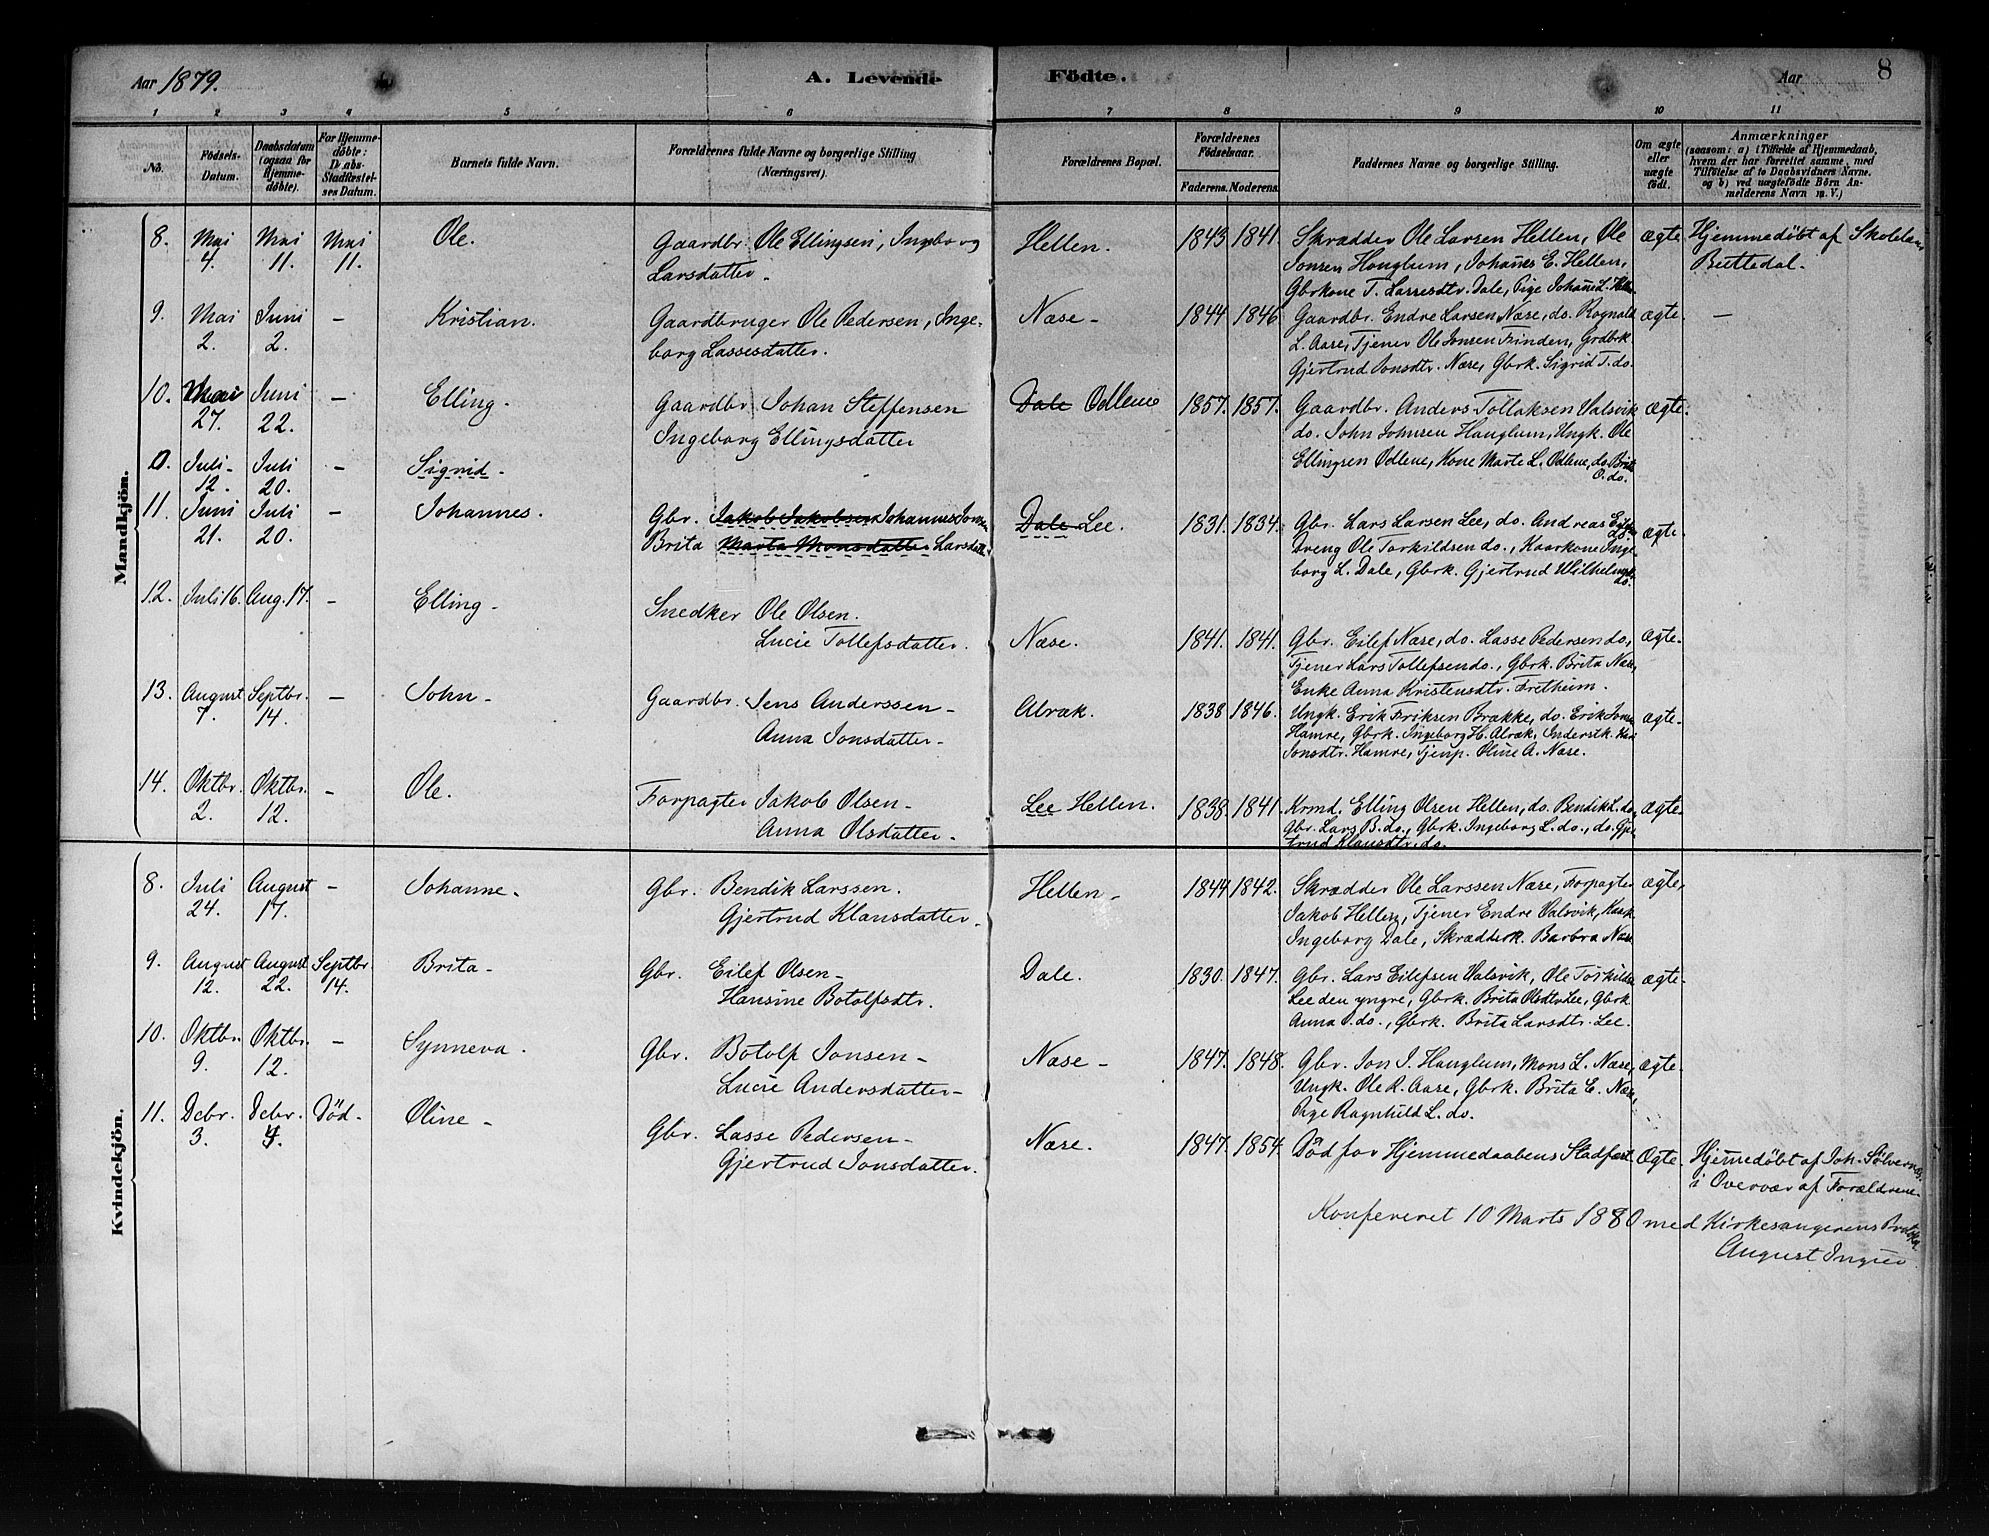 Aar 1879.
A. Levende Födte.
Aar 8
1 2 3 4 5 6 7 8 9 10 11
No. Födsels-Datum. Daabsdatum (ogsaa for Hjemmedöbte). For Hjemmedöbte: Daabs-Stadfæstelses Datum. Barnets fulde Navn. Forældrenes fulde Navne og borgerlige Stilling (Næringsvei). Forældrenes Bopæl. Forældrenes Födselsaar. Faderens. Moderens. Faddernes Navne og borgerlige Stilling. Om ægte eller uægte födt. Anmærkninger
(saasom: a) i Tilfælde af Hjemmedaab, hvem der har forrettet samme, med Tilföielse af to Daabsvidners Navne, og b) ved uægtefödte Börn Anmelderens Navn m. V.)
Mandkjön.
8. Mai 4. Mai 11. Mai 11. Ole. Gaardbr. Ole Ellingsen, Ingeborg Larsdatter. Hellen. 1843 1841. Skrædder Ole Larsen Hellen, Ole ægte Hjemmedöbt af
Jonsen Hauglum, Johañes E. Hellen, Buttedal.
Gbrkone T. Lassesdtr. Dale, Pige Johañe L.
9. Mai 2. Juni 2. – Kristian. Gaardbruger Ole Pedersen, Ingeborg Lassesdatter. Næse – 1844 1846 Gaardbr. Endre Larsen Næse, do. Rognald ægte. –
L. Aase, Tjener Ole Jonsen Frinden, Grdbrk
Gjertrud Jonsdtr. Næse, Gbrk. Sigrid T. do.
10. Mai 27. Juni 22. – Elling. Gaardbr. Johan Steffensen Ingeborg Ellingsdatter Dale Odlene 1857. 1857. Gaardbr. Anders Tollaksen Valsvik ægte.
do. John Johnsen Hauglum, Ungk. Ole
Ellingsen Odlene, Kone Marte L. Odlene, do. Brita
O. do.
0. Juli 12. Juli 20. – Sigrid.
11. Juni 21. Juli 20. – Johannes. Gbr. Jakob Jakobsen Johannes Jonsen Brita Marta Monsdatter Larsdatter Dale Lee. 1831. 1834. Gbr. Lars Larsen Lee, do. Andreas ægte.
Dreng Ole Torkildsen do., Kaarkone Inge-
borg L. Dale, Gbrk. Gjertrud
do.
12. Juli 16. Aug. 17. – Elling – Snedker Ole Olsen. Lucie Tollefsdatter. Næse. 1841. 1841. Gbr. Eilef Næse, do. Lasse Pedersen do., ægte.
Tjener Lars Tollefsen do., Gbrk. Brita Næse,
Enke Anna Kristensdtr. Fretheim.
13. August 7. Septbr. 14. – John – Gaardbr. Jens Anderssen – Anna Jonsdatter – Alræk. 1838 1846. Ungk. Erik Eriksen Brække, do. Erik Jonsen ægte.
Hamre, Gbrk. Ingeborg H. Alræk, Inderstk. Kari
Jonsdtr. Hamre, Tjenp. Oline A. Næse.
14. Oktbr. 2. Oktbr. 12. – Ole. Forpagter Jakob Olsen – Anna Olsdatter – Lee Hellen. 1838. 1841. Krmd. Elling Olsen Hellen, do. Bendik L. do. ægte.
Gbr. Lars B. do., Gbrk. Ingeborg L. do., do. Gjer-
trud Klausdtr. do.
Kvindekjön.
8. Juli 24. August 17. – Johanne – Gbr. Bendik Larssen. Gjertrud Klausdatter. Hellen – 1844 1842. Skrædder Ole Larssen Næse, Forpagter ægte,
Jakob Hellen, Tjener Endre Valsvik, Kaark.
Ingeborg Dale, Skrædderk. Barbra Næse
9. August 12. August 22. Septbr. 14. Brita – Gbr. Eilef Olsen – Hansine Botolfsdtr. Dale. 1830. 1847. Gbr. Lars Eilefsen Valsvik, Ole Torkilds. ægte.
Lee den yngre, Gbrk. Brita Olsdtr Lee, Gbrk.
Anna P. do., Gbrk. Brita Larsdtr. Lee.
10. Oktbr. 9. Oktbr. 12. – Synneva. Gbr. Botolf Jonsen – Lucie Andersdatter – Næse – 1847. 1848. Gbr. Jon J. Hauglum, Mons L. Næse, ægte.
Ungk. Ole R. Aase, Gbrk. Brita E. Næse,
Pige Ragnhild L. do.
11. Debr. 3. Debr. 4. Död. Oline – Gbr. Lasse Pedersen – Gjertrud Jonsdatter. Næse. 1847. 1854. Död for Hjemmedaabens Stadfæst. Ægte. Hjemedöbt af Joh. Sölvernes.
i Overvær af Forældrene.
Konfereret 10 Marts 1880 med Kirkesangerens
August